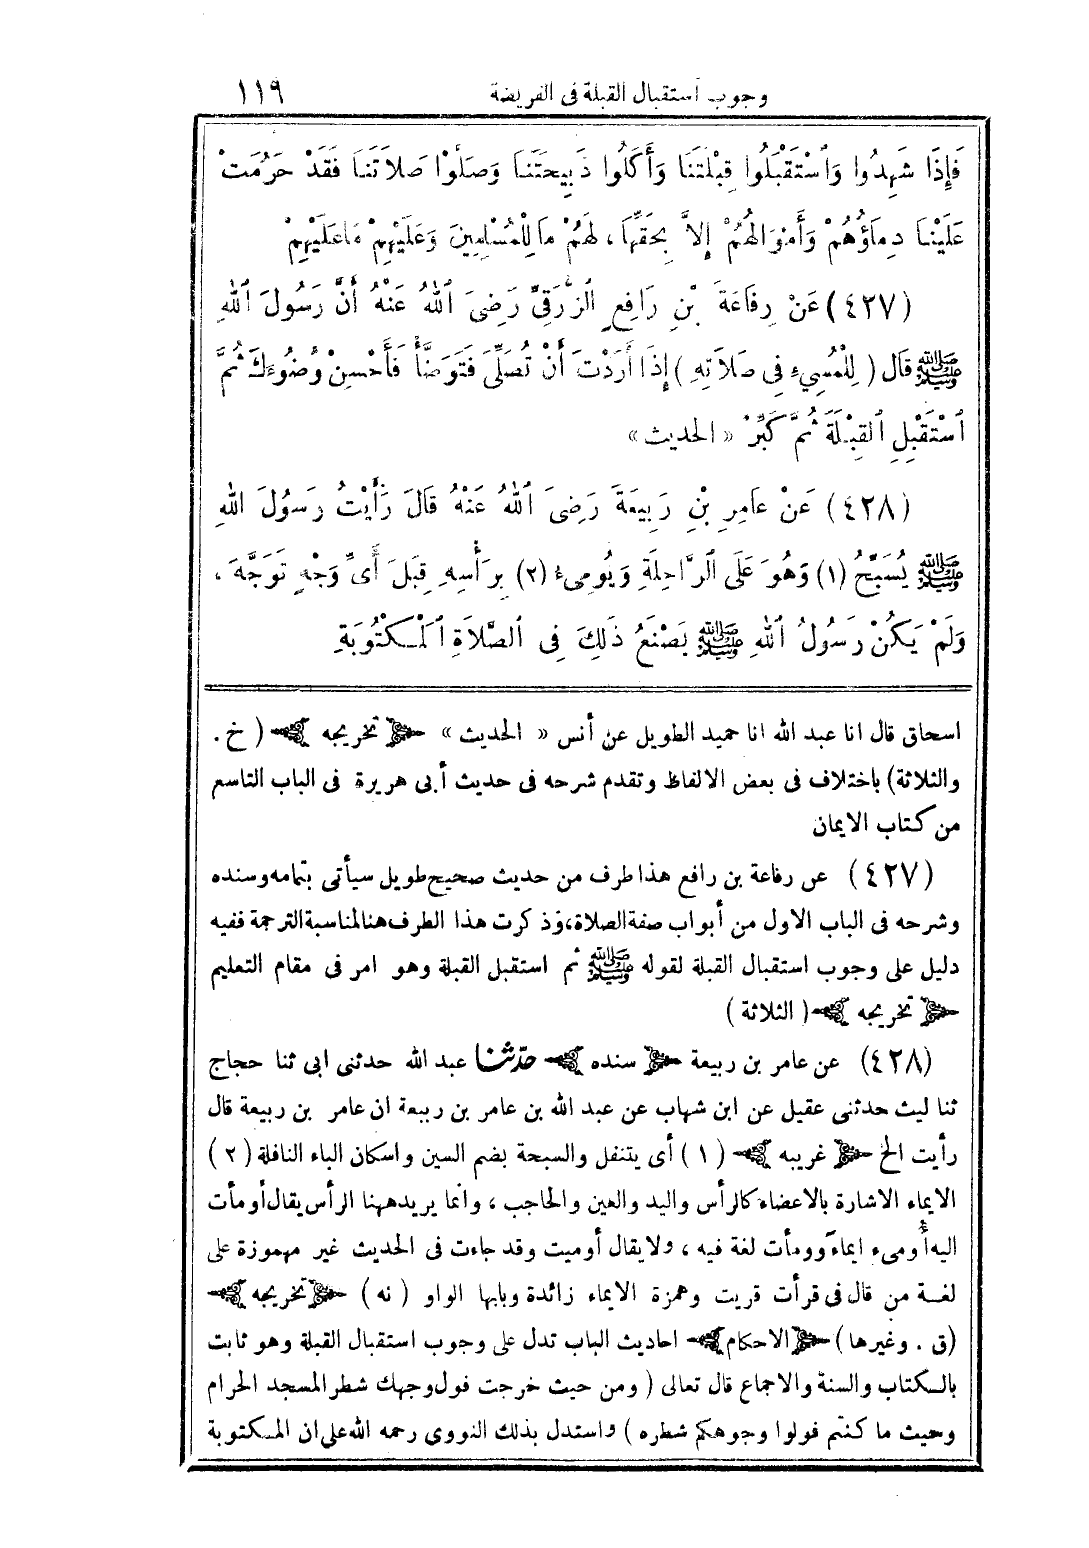 وجوب استقبال القبلة فى الفريضة ١١٩
فَإِذَا شَهِدُوا وَٱسْتَقْبَلُوا قِبْلَتَنَا وَأَكَلُوا ذَبِيحَتَنَا وَصَلُّوْا صَلَاتَنَا فَقَدْ حَرُمَتْ
عَلَيْنَا دِمَاؤُهُمْ وَأَمْوَالُهُمْ إِلاَّ بِحَقِّهَا ، لَهُمْ مَا لِلْمُسْلِمِينَ وَعَلَيْهِمْ مَا عَلَيْهِمْ
(٤٢٧) عَنْ رِفَاعَةَ بْنِ رَافِعٍ الزُّرَقِيِّ رَضِيَ ٱللهُ عَنْهُ أَنَّ رَسُولَ ٱللهِ
ﷺ قَالَ ( لِلْمُسِيءِ فِى صَلَاتِهِ ) إِذَا أَرَدْتَ أَنْ تُصَلِّىَ فَتَوَضَّأْ فَأَحْسِنْ وُضُوءَكَ ثُمَّ
ٱسْتَقْبِلِ ٱلقِبْلَةَ ثُمَّ كَبِّرْ « الحديث »
(٤٢٨) عَنْ عَامِرِ بْنِ رَبِيعَةَ رَضِىَ ٱللهُ عَنْهُ قَالَ رَأَيْتُ رَسُولَ اللهِ
ﷺ يُسَبِّحُ (١) وَهُوَ عَلَى الرَّاحِلَةِ وَيُومِىءُ (٢) بِرَأْسِهِ قِبَلَ أَىِّ وَجْهٍ تَوَجَّهَ ،
وَلَمْ يَكُنْ رَسُولُ ٱللهِ ﷺ يَصْنَعُ ذَلِكَ فِى ٱلصَّلاَةِ ٱلْمَكْتُوبَةِ
اسحاق قال انا عبد الله انا حميد الطويل عن أنس « الحديث » ﴿ تخريجه ﴾ ( خ .
والثلاثة) باختلاف فى بعض الالفاظ وتقدم شرحه فى حديث أبى هريرة فى الباب التاسع
من كتاب الايمان
(٤٢٧) عن رفاعة بن رافع هذا طرف من حديث صحيح طويل سيأتى بتمامه وسنده
وشرحه فى الباب الاول من أبواب صفة الصلاة، وذكرت هذا الطرف هنا لمناسبة الترجمة ففيه
دليل على وجوب استقبال القبلة لقوله ﷺ ثم استقبل القبلة وهو امر فى مقام التعليم
﴿ تخريجه ﴾ ( الثلاثة )
(٤٢٨) عن عامر بن ربيعة ﴿ سنده ﴾ حدّثنا عبد الله حدثنى ابى ثنا حجاج
ثنا ليث حدثنى عقيل عن ابن شهاب عن عبد الله بن عامر بن ربيعة ان عامر بن ربيعة قال
رأيت الخ ﴿ غريبه ﴾ ( ١ ) أى يتنفل والسبحة بضم السين واسكان الباء النافلة ( ٢ )
الايماء الاشارة بالاعضاء كالرأس واليد والعين والحاجب ، وانما يريد ههنا الرأس يقال أومأت
اليه أومىء ايماءً وومأت لغة فيه ، ولا يقال أوميت وقد جاءت فى الحديث غير مهموزة على
لغة من قال فى قرأت قريت وهمزة الايماء زائدة وبابها الواو ( نه ) ﴿ تخريجه ﴾
(ق . وغيرها) ﴿ الاحكام ﴾ احاديث الباب تدل على وجوب استقبال القبلة وهو ثابت
بالكتاب والسنة والاجماع قال تعالى ( ومن حيث خرجت فول وجهك شطر المسجد الحرام
وحيث ما كنتم فولوا وجوهكم شطره ) واستدل بذلك النووى رحمه الله على ان المكتوبة